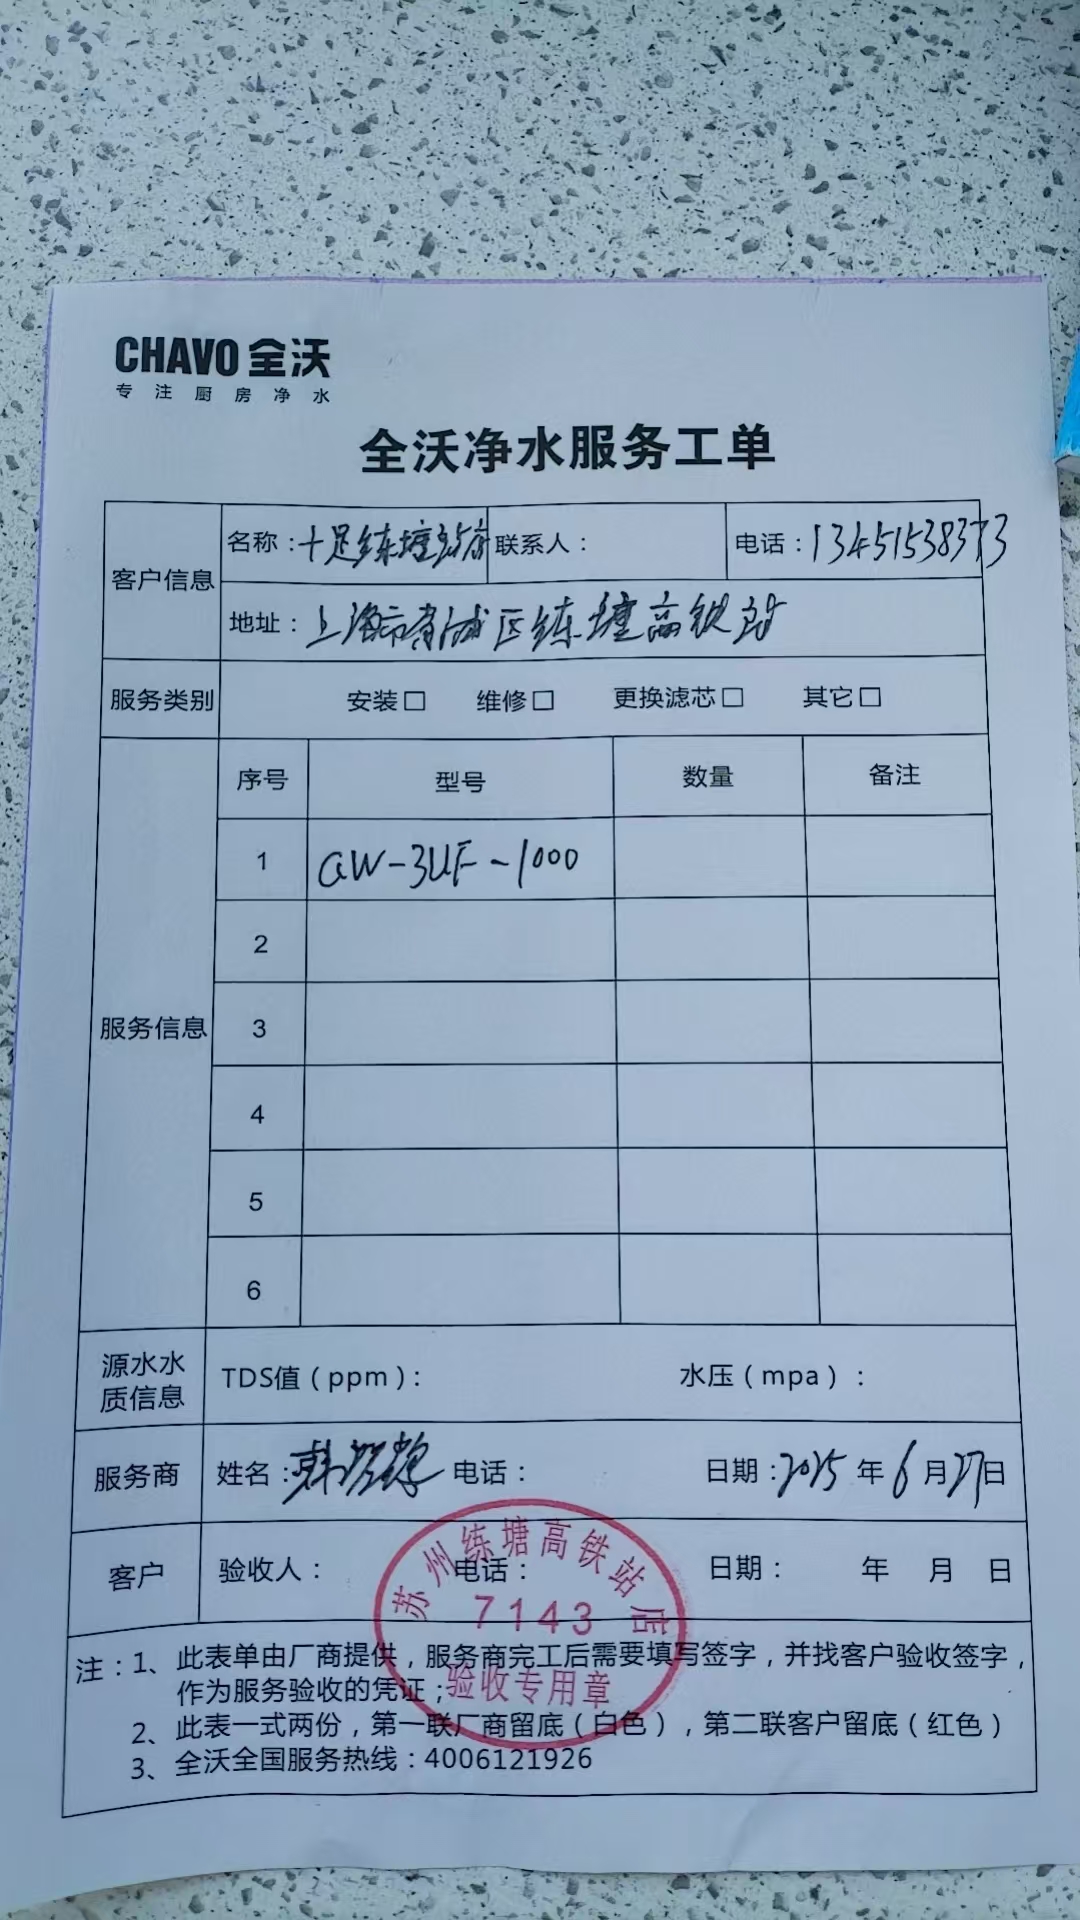 CHAVO 全沃
专注厨房净水
全沃净水服务工单
客户信息
名称：十足练塘站店 联系人： 电话：13451538373
地址：上海市青浦区练塘高铁站
服务类别 安装□ 维修□ 更换滤芯□ 其它□
服务信息
序号 型号 数量 备注
1 QW-3UF-1000
2
3
4
5
6
源水水质信息 TDS值（ppm）： 水压（mpa）：
服务商 姓名：韩 电话： 日期：2025年6月27日
客户 验收人： 电话： 日期： 年 月 日
苏州练塘高铁站店
7143
验收专用章
注：1、此表单由厂商提供，服务商完工后需要填写签字，并找客户验收签字，
作为服务验收的凭证；
2、此表一式两份，第一联厂商留底（白色），第二联客户留底（红色）
3、全沃全国服务热线：4006121926